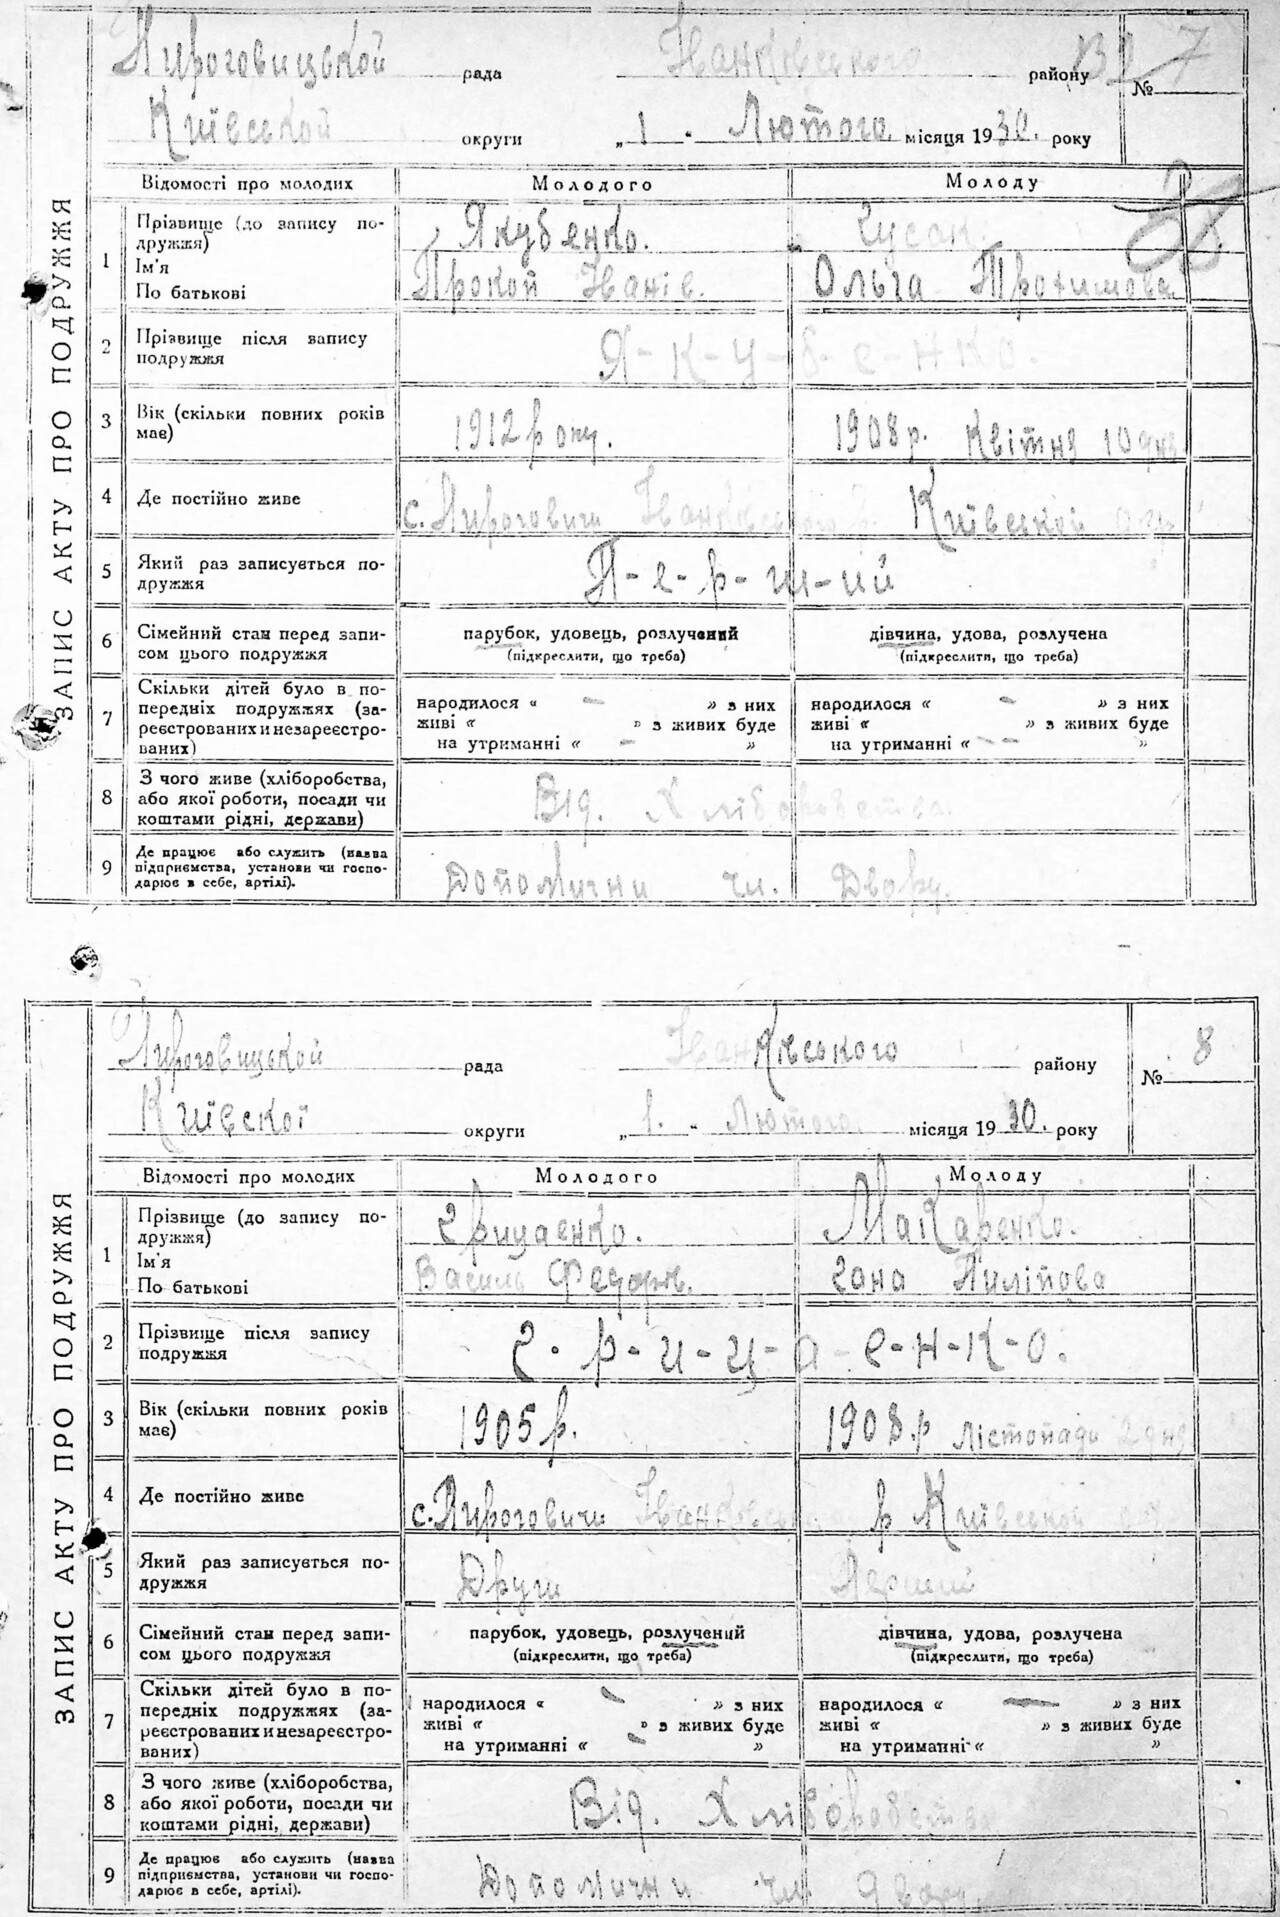 Пироговицької рада Іванківського району № 7
Київської округи „ 1 " Лютого місяця 1930. року
ЗАПИС АКТУ ПРО ПОДРУЖЖЯ
Відомості про молодих Молодого Молоду
1 Прізвище (до запису по-
дружжя) Якубенко. Гусак.
Ім'я
По батькові Прокоп Іванів. Ольга Трохимова
2 Прізвище після запису
подружжя Я-к-у-б-е-нко.
3 Вік (скільки повних років
має) 1912 року. 1908 р. Квітня 10 дня
4 Де постійно живе с. Пироговичи Іванківського р. Київської окр
5 Який раз записується по-
дружжя П-е-р-ш-ий
6 Сімейний стан перед запи-
сом цього подружжя парубок, удовець, розлучений дівчина, удова, розлучена
(підкреслити, що треба) (підкреслити, що треба)
7 Скільки дітей було в по-
передніх подружжях (за-
реєстрованих и незареєстро-
ваних)
народилося « – » з них народилося « – » з них
живі « » з живих буде живі « » з живих буде
на утриманні « – » на утриманні « – – »
8 З чого живе (хліборобства,
або якої роботи, посади чи
коштами рідні, держави) Від. Хліборобства.
9 Де працює або служить (назва
підприємства, установи чи госпо-
дарює в себе, артілі). Допомични чл. Двору.
Пироговицької рада Іванківського району № 8
Київської округи „ 1. " Лютого місяця 1930. року
ЗАПИС АКТУ ПРО ПОДРУЖЖЯ
Відомості про молодих Молодого Молоду
1 Прізвище (до запису по-
дружжя) Грицаенко. Макаренко.
Ім'я
По батькові Василь Федорів. Гана Пиліпова
2 Прізвище після запису
подружжя Г-р-и-ц-а-е-н-к-о.
3 Вік (скільки повних років
має) 1905 р. 1908 р Лістопада 2 дня
4 Де постійно живе с. Пироговичи Іванківського р Київської
5 Який раз записується по-
дружжя Други Перший
6 Сімейний стан перед запи-
сом цього подружжя парубок, удовець, розлучений дівчина, удова, розлучена
(підкреслити, що треба) (підкреслити, що треба)
7 Скільки дітей було в по-
передніх подружжях (за-
реєстрованих и незареєстро-
ваних)
народилося « – » з них народилося « – » з них
живі « » з живих буде живі « » з живих буде
на утриманні « – » на утриманні « »
8 З чого живе (хліборобства,
або якої роботи, посади чи
коштами рідні, держави) Від. Хліборобства
9 Де працює або служить (назва
підприємства, установи чи госпо-
дарює в себе, артілі). Допомични чл. двору.